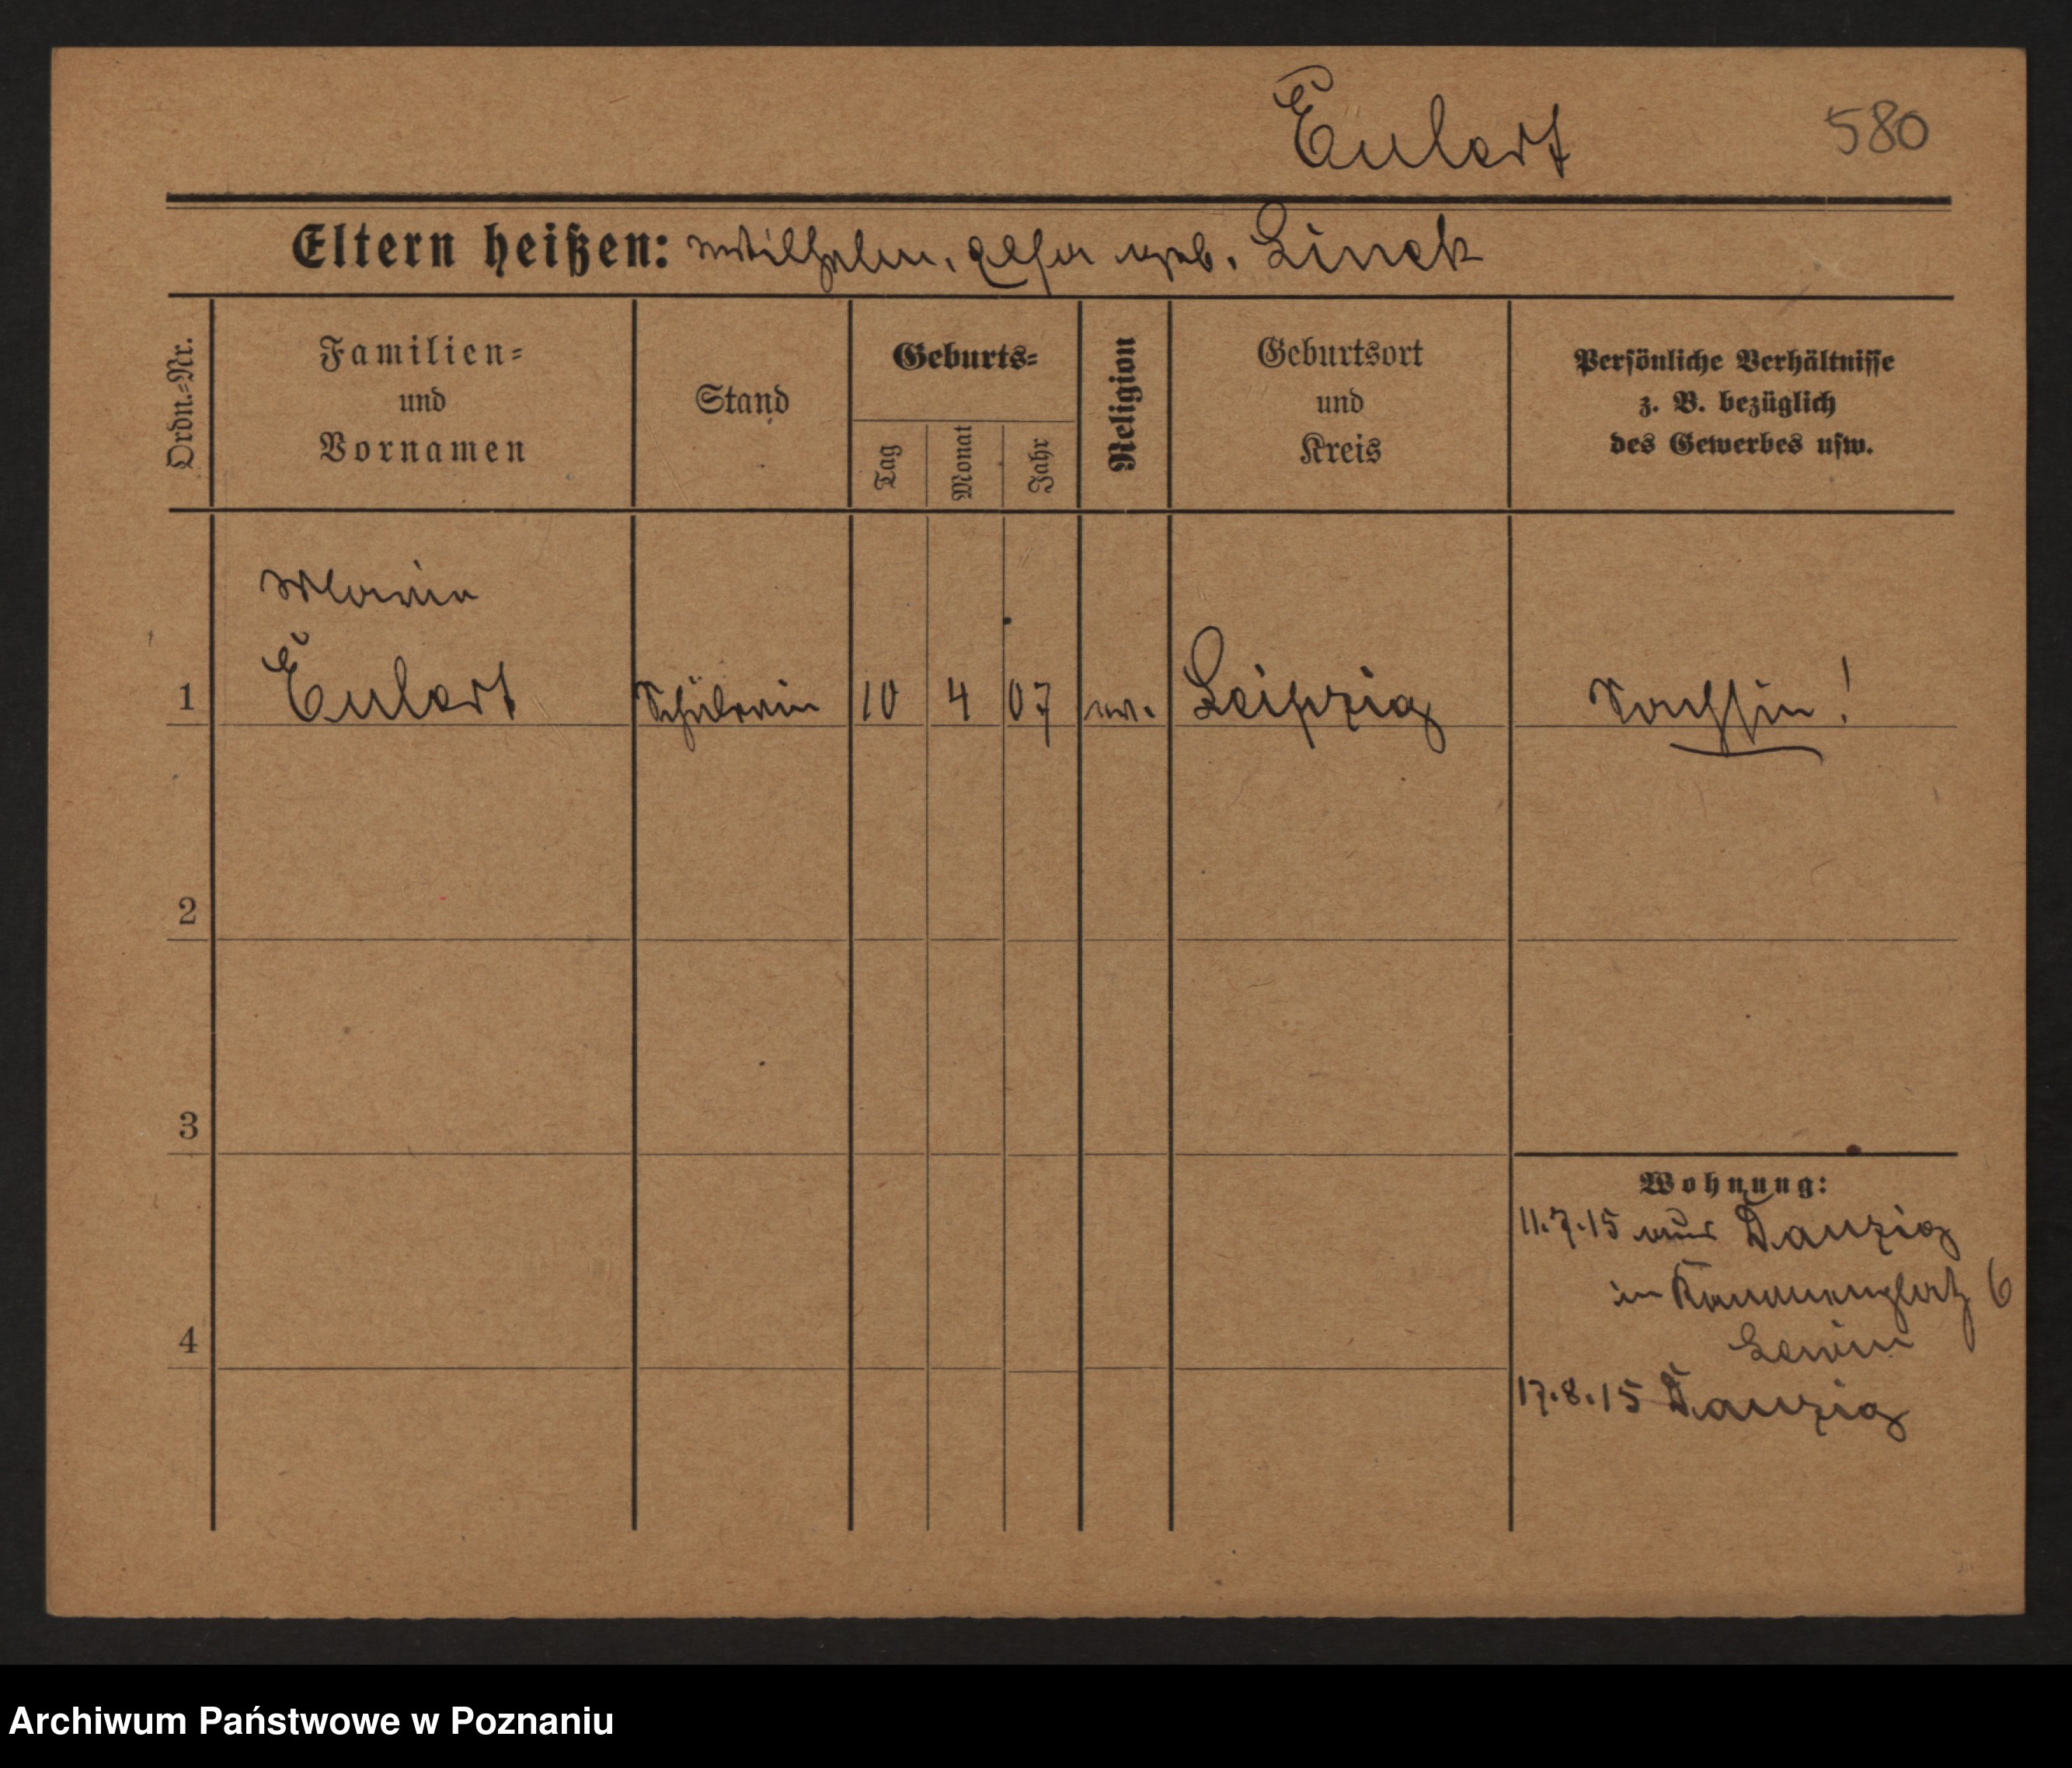 Eulert 580
Eltern heißen: Wilhelm, geb. Linck
Ordn.=Nr.
Familien=
und
Vornamen
Stand
Geburts=
Tag
Monat
Jahr
Religion
Geburtsort
und
Kreis
Persönliche Verhältnisse
z. B. bezüglich
des Gewerbes usw.
Maria
1 Eulert Schülerin 10 4 07 ev. Leipzig Sächsin!
2
3
4
Wohnung:
11.7.15 aus Danzig
in 6
Lewin
17.8.15 Danzig
Archiwum Państwowe w Poznaniu